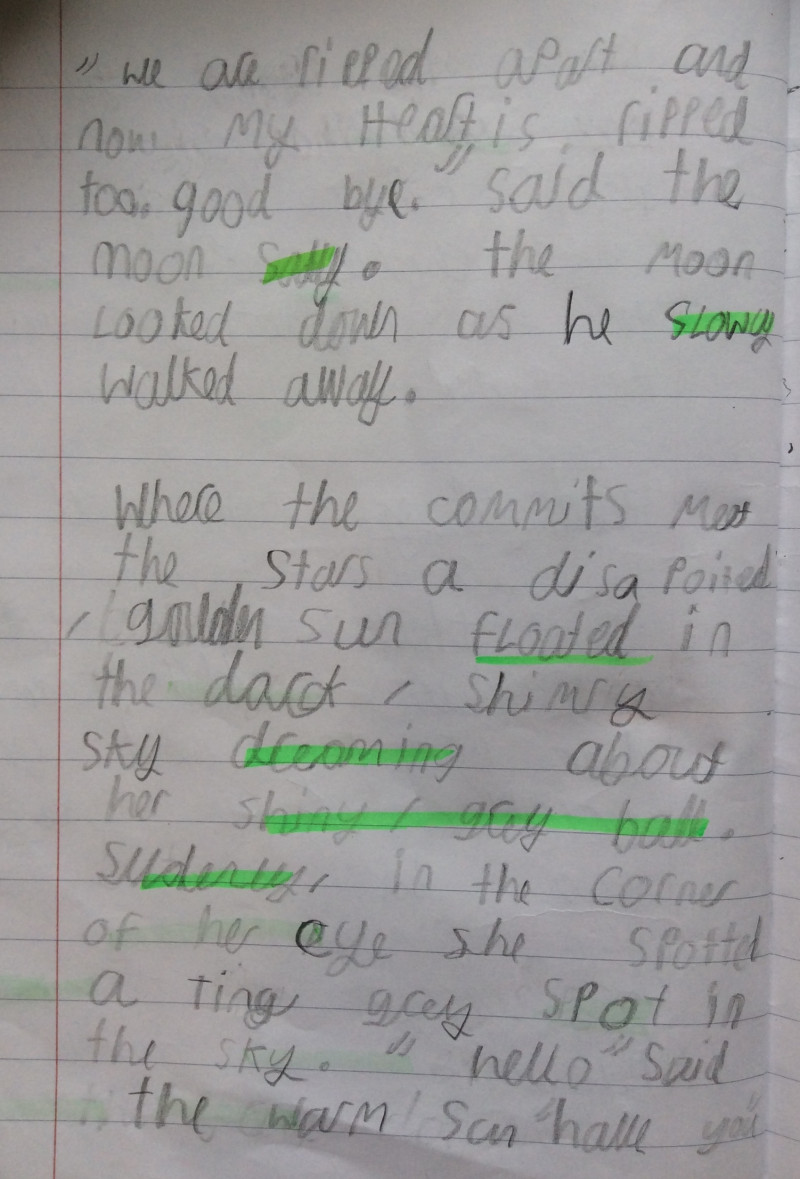 " we are ripped apart and
now my Heart is ripped
too. good bye." said the
moon sally. the Moon
Looked down as he SLOWY
Walked away.
Where the commits Meat
the stars a disapoited
, gouldn sun fLoated in
the darct, shinry
sky dreaming about
her shiny, grey ball.
Sudenley, in the corner
of her eye she spotted
a ting grey spot in
the sky. "hello" said
the warm sun "have you